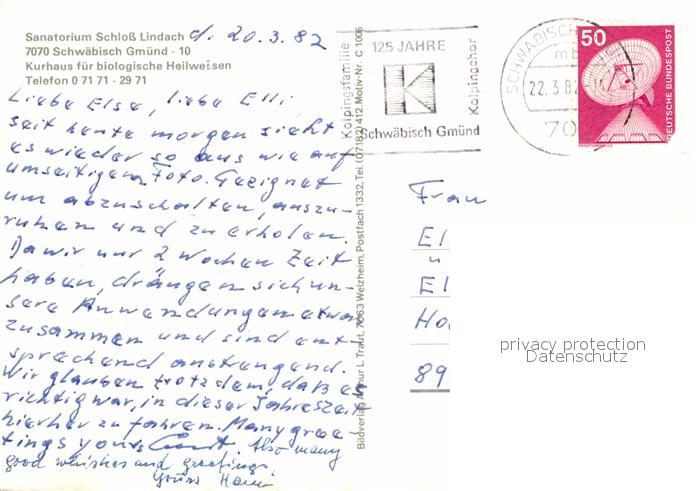 Sanatorium Schloß Lindach
7070 Schwäbisch Gmünd - 10
Kurhaus für biologische Heilweisen
Telefon 0 71 71 - 29 71
d. 20.3.82
Liebe Else, liebe Elli
seit heute morgen sieht
es wieder so aus wie auf
umseitigem Foto. Geeignet
um abzuschalten, auszu-
ruhen und zu erholen.
Da wir nur 2 Wochen Zeit
haben, drängen sich un-
sere Anwendungen etwas
zusammen und sind ent-
sprechend anstrengend.
Wir glauben trotzdem, daß es
richtig war, in dieser Jahreszeit
hierher zu fahren. Many gree-
tings yours Also many
good whishes and greetings.
Yours
Bildverlag Arthur L. Traut, 7063 Welzheim, Postfach 1332, Tel. (07182) 412. Motiv-Nr. C 1006
Kolpingsfamilie
125 JAHRE
K
Kolpingchor
Schwäbisch Gmünd
SCHWÄBISCH
mb
22.3.82
70
50
DEUTSCHE BUNDESPOST
Frau
El
u
El
Ho
89
privacy protection
Datenschutz